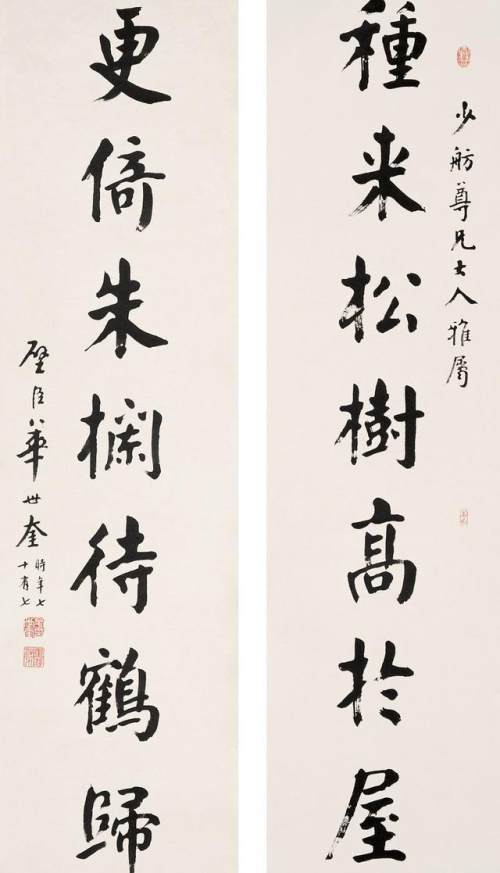 少舫尊兄大人雅屬
種来松樹高於屋
更倚朱欄待鶴歸
璧臣華世奎
時年七
十有七